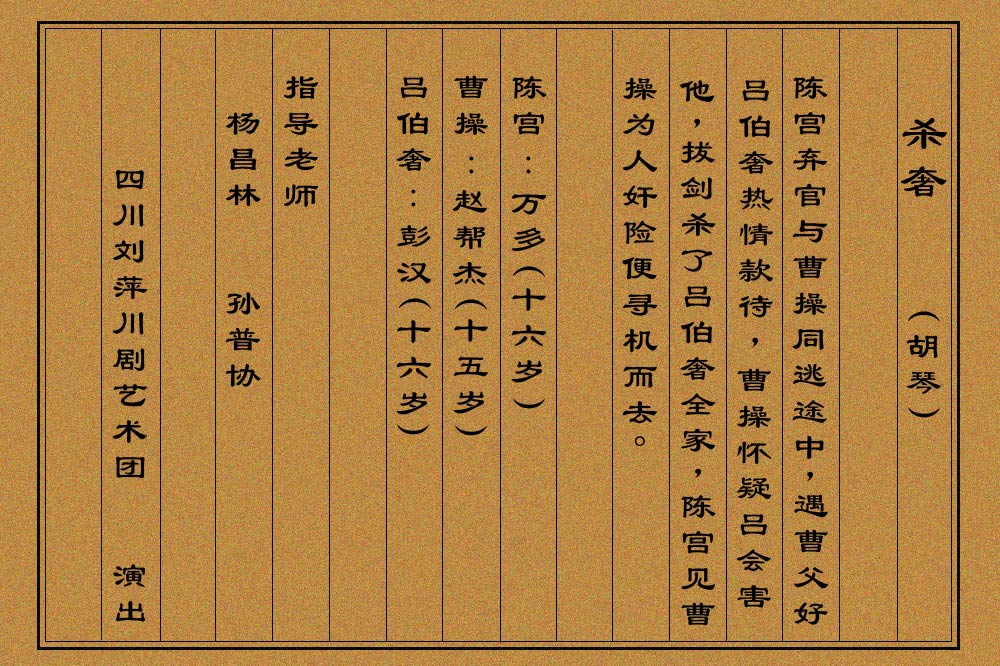 杀奢 （胡琴）
陈宫弃官与曹操同逃途中，遇曹父好
吕伯奢热情款待，曹操怀疑吕会害
他，拔剑杀了吕伯奢全家，陈宫见曹
操为人奸险便寻机而去。
陈宫：万多（十六岁）
曹操：赵帮杰（十五岁）
吕伯奢：彭汉（十六岁）
指导老师
杨昌林 孙普协
四川刘萍川剧艺术团 演出